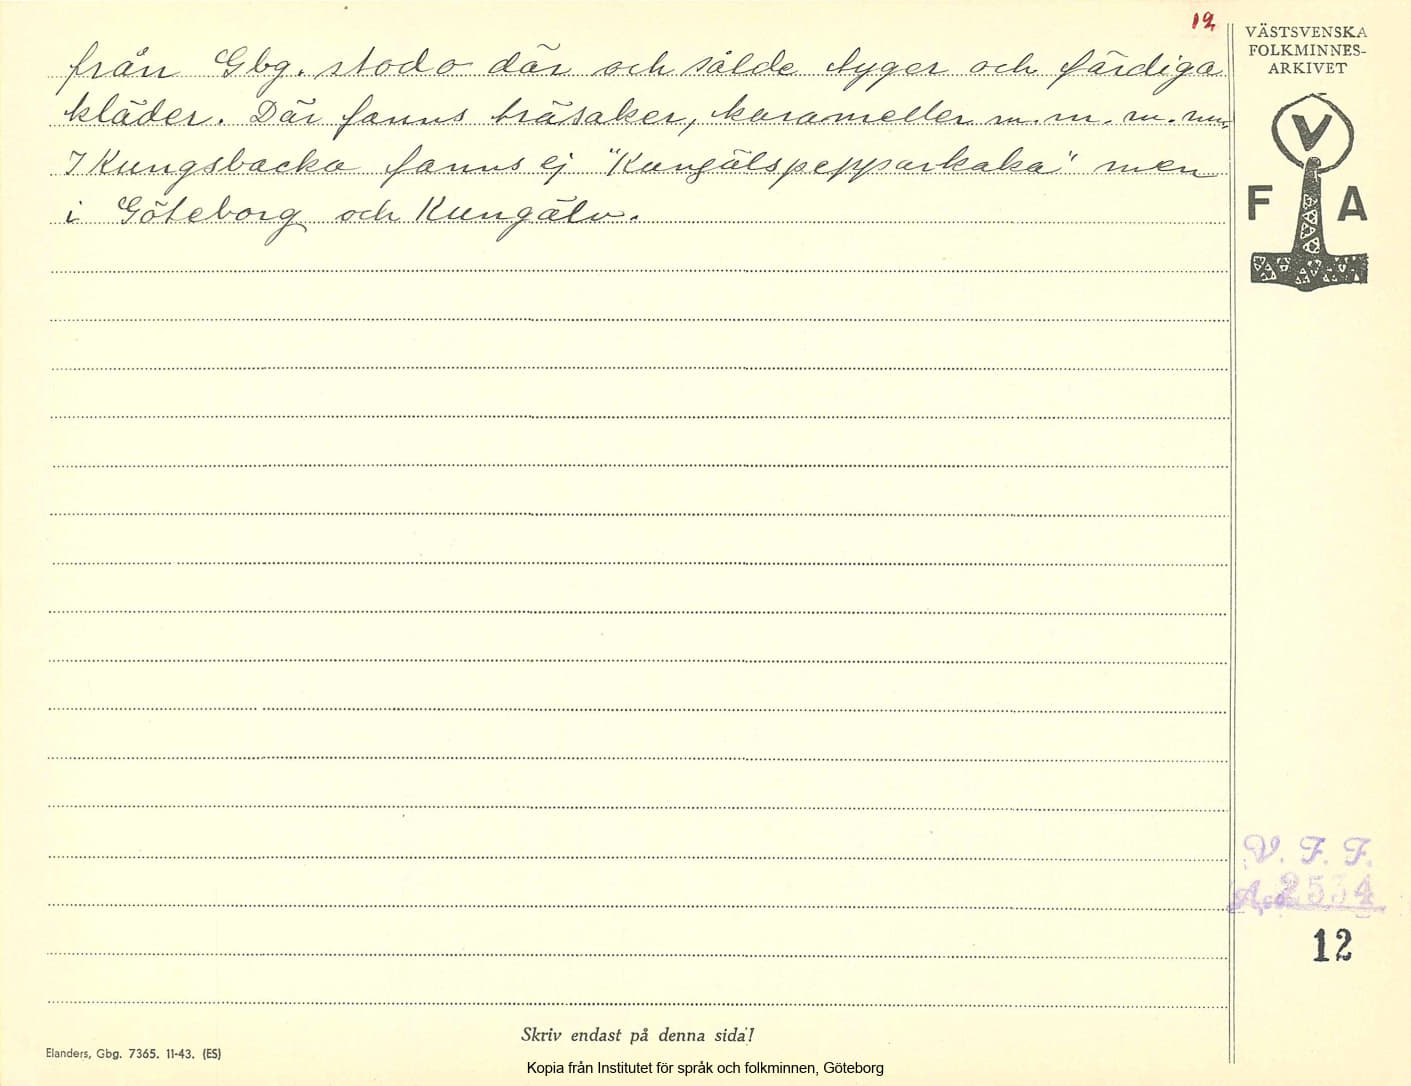 12
från Gbg. stodo där och sålde tyger och färdiga
kläder. Där fanns träsaker, karameller m. m. m. m.
I Kungsbacka fanns ej "Kungälspepparkaka" men
i Göteborg och Kungälv.
VÄSTSVENSKA
FOLKMINNES-
ARKIVET
V
F A
V. F. F.
Acc. 2534
12
Skriv endast på denna sida!
Elanders, Gbg. 7365. 11-43. (ES)
Kopia från Institutet för språk och folkminnen, Göteborg